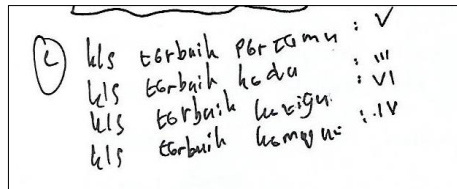 c kls terbaik pertama : V
kls terbaik kedua : III
kls terbaik ketiga : VI
kls terbaik : IV